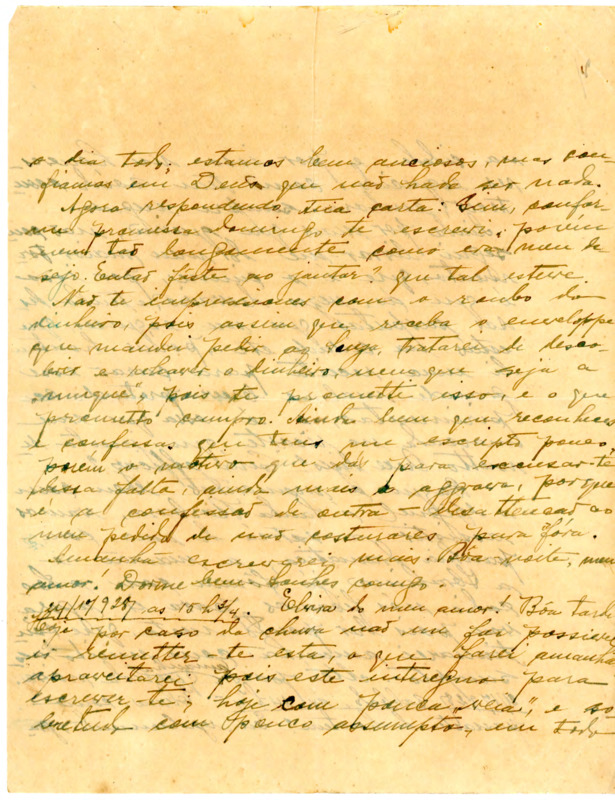 o dia todo; estamos bem anciosos, mas con-
fiamos em Deus que não hade ser nada.
Agora respondendo tua carta: Sim, confor-
me promessa domingo te escrevi, porém
nem tão longamente como era meu de-
sejo. Então foste ao jantar? que tal esteve
Não te impressiones com o roubo do
dinheiro, pois assim que receba o enveloppe
que mandei pedir ao tratarei de desco-
brir e rehaver o dinheiro, nem que seja a
"muque" pois te prometto isso, e o que
prometto cumpro. Ainda bem que reconheces
e confessas que tens me escripto pouco,
porem o motivo que dás para excusar-te
dessa falta, ainda mais a aggrava, porque
é a confissão de outra — desattenção ao
meu pedido de não costurares para fóra.
Amanhã escreverei mais. Bôa noite, meu
amor! Dorme bem Sonhes comigo
as 15 h Elvira do meu amor! Bôa tarde
Hoje por caso da chuva não me foi possivel
ir remetter te esta, o que farei amanhã
aproveitarei pois este interegno para
escrever-te; hoje com pouca "veia", e so
bretudo com pouco assumpto, em todo